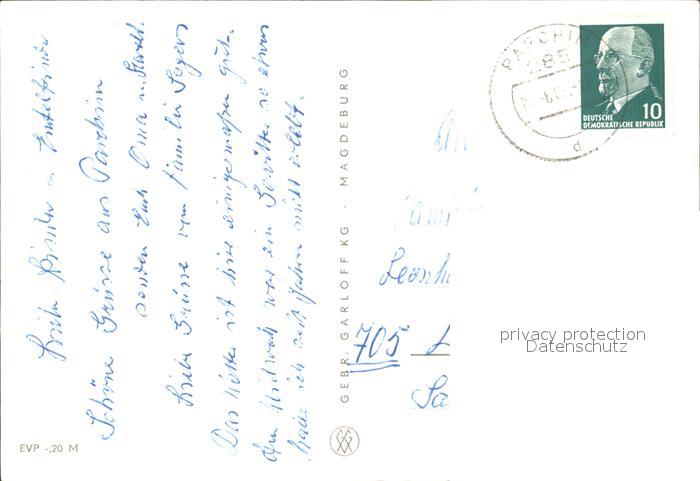 Liebe Kinder u. Enkelkinder
Schöne Grüsse aus Parchim
senden Euch Oma u.
Liebe Grüsse von Familie Segers
Das Wetter ist hier einigermaßen gut.
Am Mittwoch war ein Gewitter so etwas
habe ich seit Jahren nicht erlebt.
EVP -,20 M
GEBR. GARLOFF KG · MAGDEBURG
PARCHIM
d
DEUTSCHE
DEMOKRATISCHE REPUBLIK
10
An
Leonh
705 L
privacy protection
Datenschutz